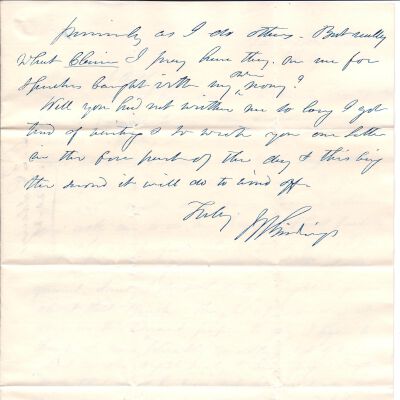 as I do others. But really
What Claim I pray have they on me for
bought with my own money?
Well you had not written me so long I got
tired of waiting & so wrote you one letter
in the fore part of the day & this being
the second it will do to wind off.
Truly